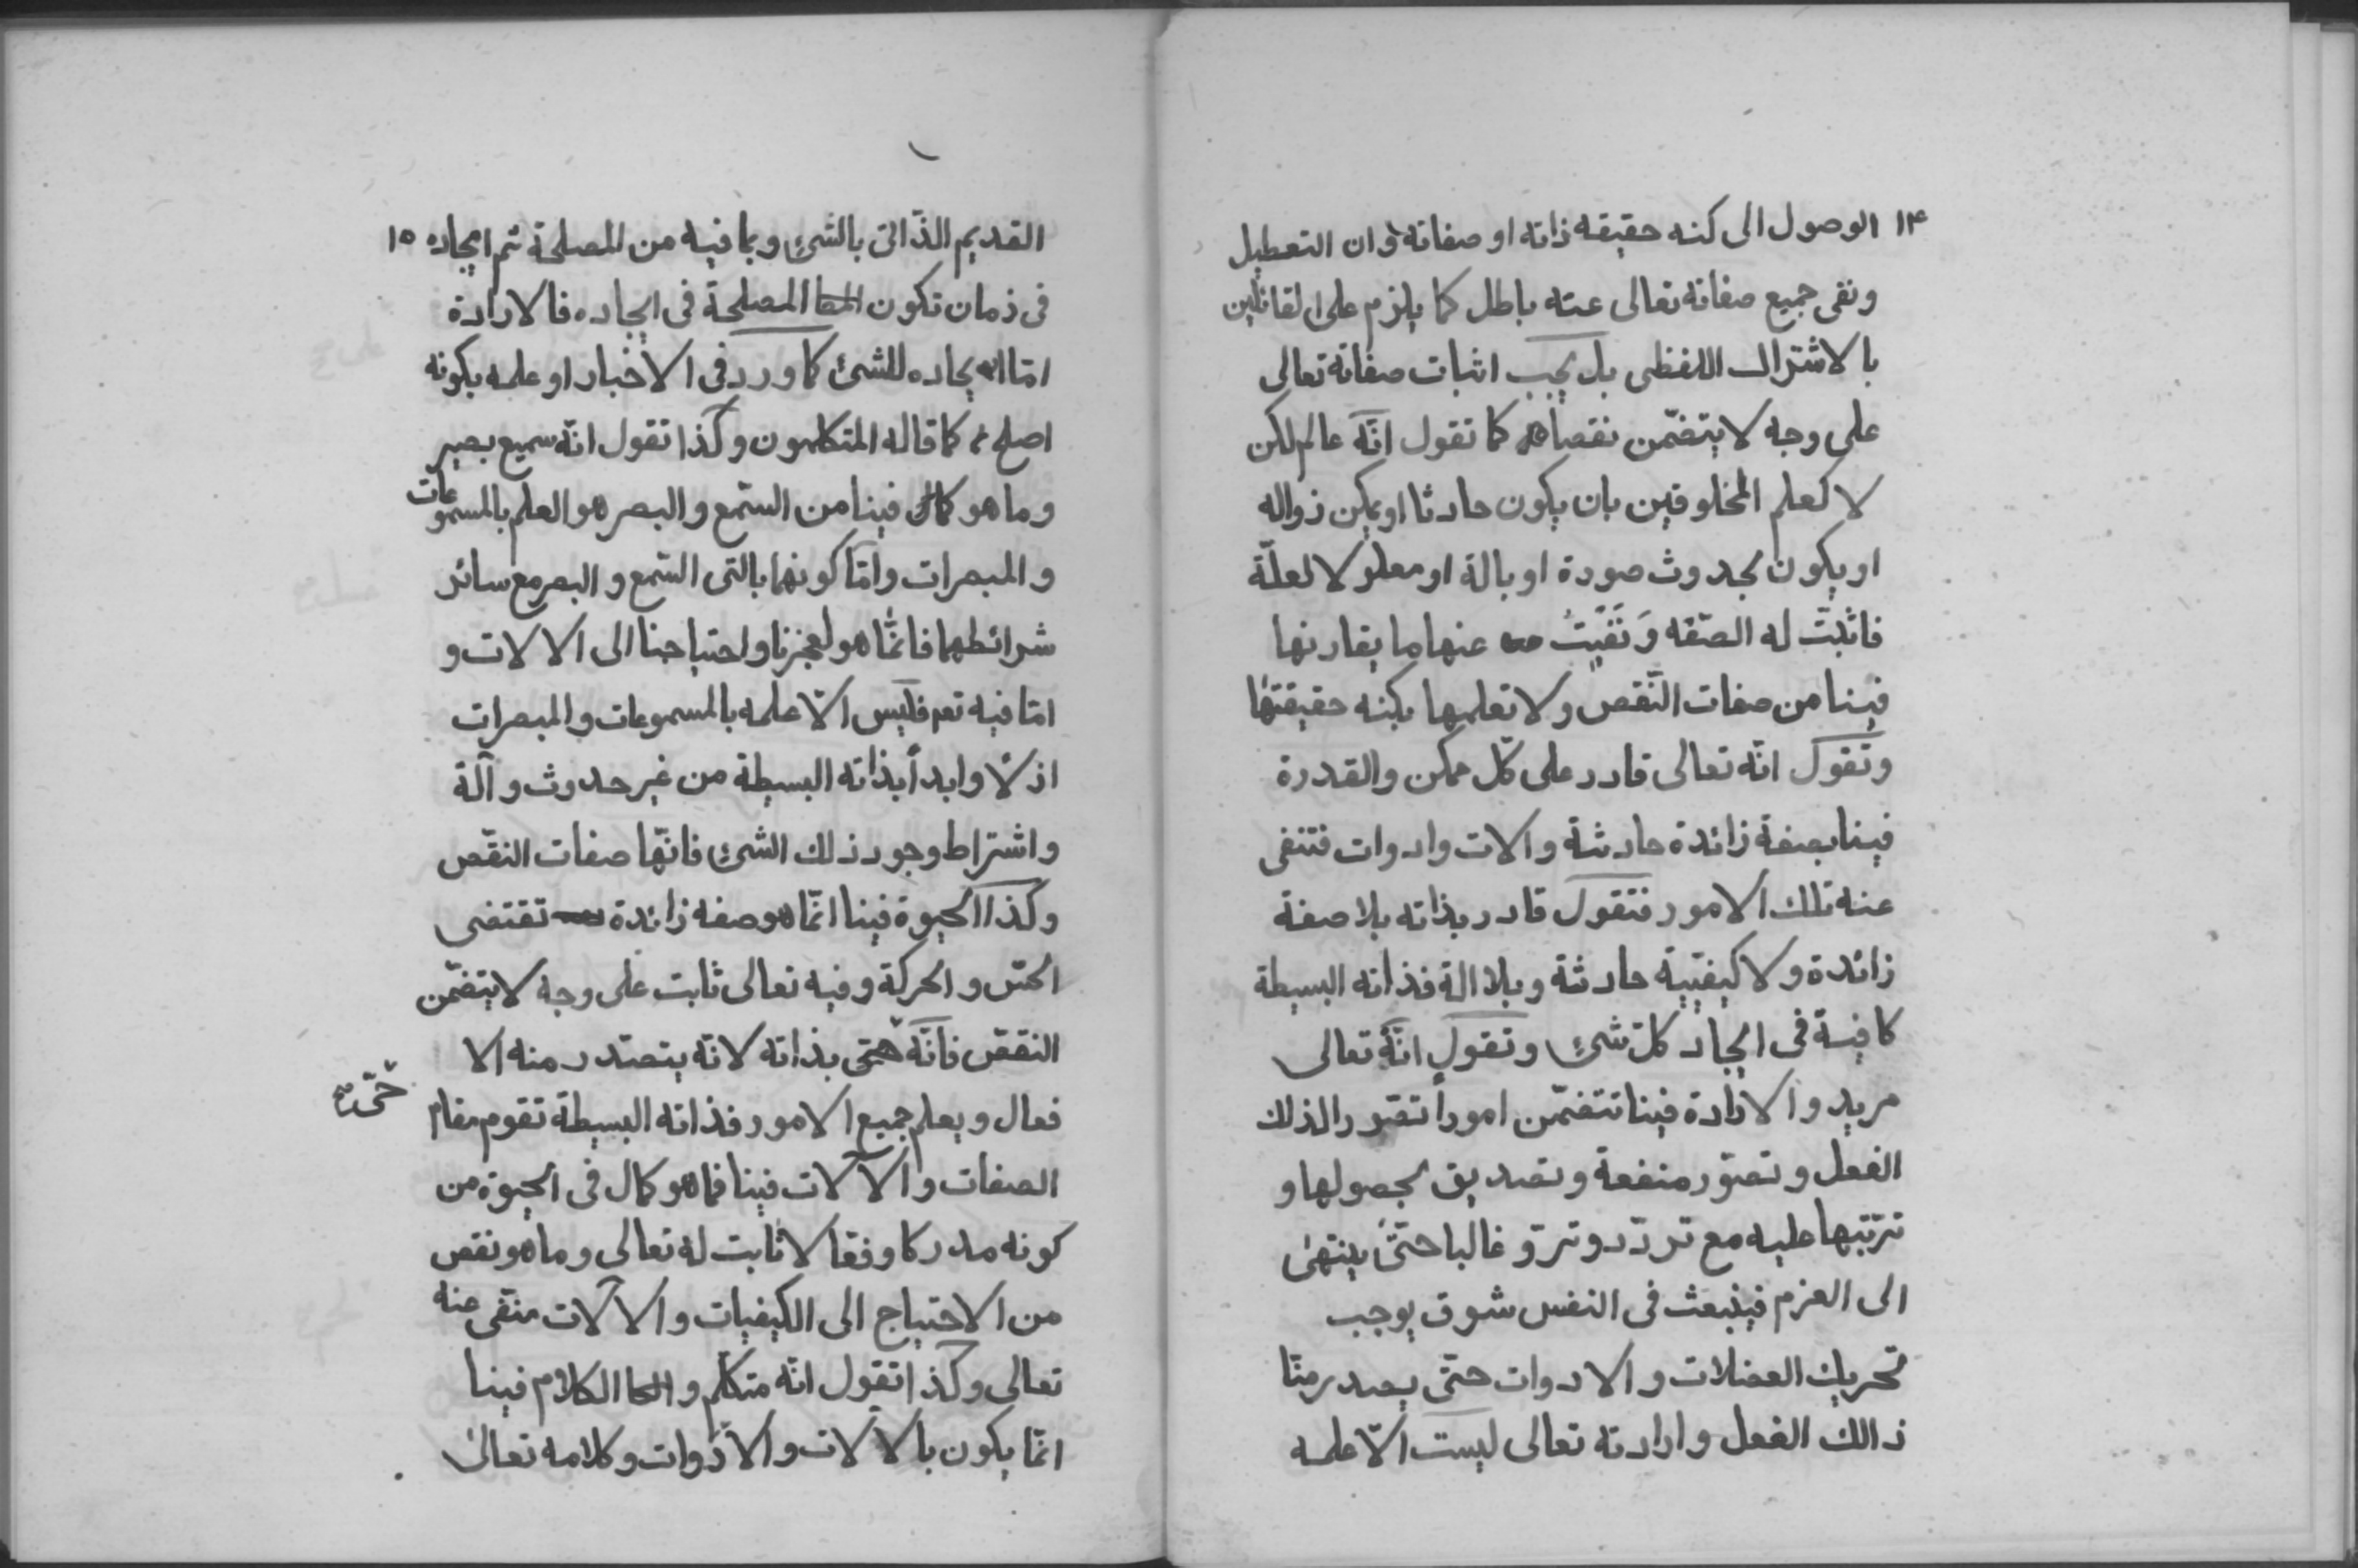 ١٤ الوصول الى كنه حقيقه ذاته او صفاته وان التعطيل
ونفى جميع صفاته تعالى عنه باطل كما يلزم على القائلين
بالاشتراك اللفظى بل يجب اثبات صفاته تعالى
على وجه لا يتضمّن نقصا كما تقول انّه عالم لكن
لا كعلم المخلوقين بان يكون حادثا او يمكن زواله
او يكون بحدوث صورة او بالة او معلولا لعلّة
فاثبتّ له الصّفه وَنَفَيْتَ عنها ما يقارنها
فينا من صفات النّقص ولا تعلمها بكنه حقيقتها
وتقول انّه تعالى قادر على كلّ ممكن والقدرة
فينا بصفة زائدة حادثة والات وادوات فتنفى
عنه تلك الامور فتقول قادر بذاته بلا صفة
زائدة ولا كيفيّية حادثة وبلا الة فذاته البسيطة
كافية فى ايجاد كلّ شئ وتقول انّه تعالى
مريد والارادة فينا تتضمّن اموراً تصّور الذلك
الفعل وتصوّر منفعة وتصديق بحصولها و
ترتّبها عليه مع تردّد وتروّ غالبا حتّى ينتهى
الى العزم فينبعث فى النفس شوق يوجب
تحريك العضلات والادوات حتّى يصدر منّا
ذالك الفعل وارادته تعالى ليست الاّ علمه
القديم الذّاتى بالشئ وبما فيه من المصلحة ثم ايجاده ١٥
فى زمان تكون المصلحة فى ايجاده فالارادة
امّا ايجاده للشئ كما ورد فى الاخبار او علمه بكونه
اصلح كما قاله المتكلمون وكذا تقول انّه سميع بصير
وما هو كمال فينا من السّمع والبصر هو العلم بالمسموعات
والمبصرات وامّا كونهما بالتى السّمع والبصر مع سائر
شرائطهما فانمّا هو لعجزنا واحتياجنا الى الالات و
امّا فيه تعم فليس الاّ علمه بالمسموعات والمبصرات
ازلاً وابداً بذاته البسيطة من غير حدوث وآلة
واشتراط وجود ذلك الشئ فانّها صفات النقّص
وكذا الحيوة فينا انّما هو صفه زائدة تقتضى
الحسّ والحركة وفيه تعالى ثابت على وجه لا يتضمّن
النقص فانّه حىّ بذاته لانّه يتصدر منه الا
حىّ
فعال ويعلم جميع الامور فذاته البسيطة تقوم مقام
الصفات والآلات فينا فما هو كمال فى الحيوة من
كونه مدركا وفعّالا ثابت له تعالى وما هو نقص
من الاحتياج الى الكيفيات والآلات منتفى عنه
تعالى وكذا تقول انّه متكلّم والكلام فينا
انمّا يكون بالآلات والادوات وكلامه تعالى